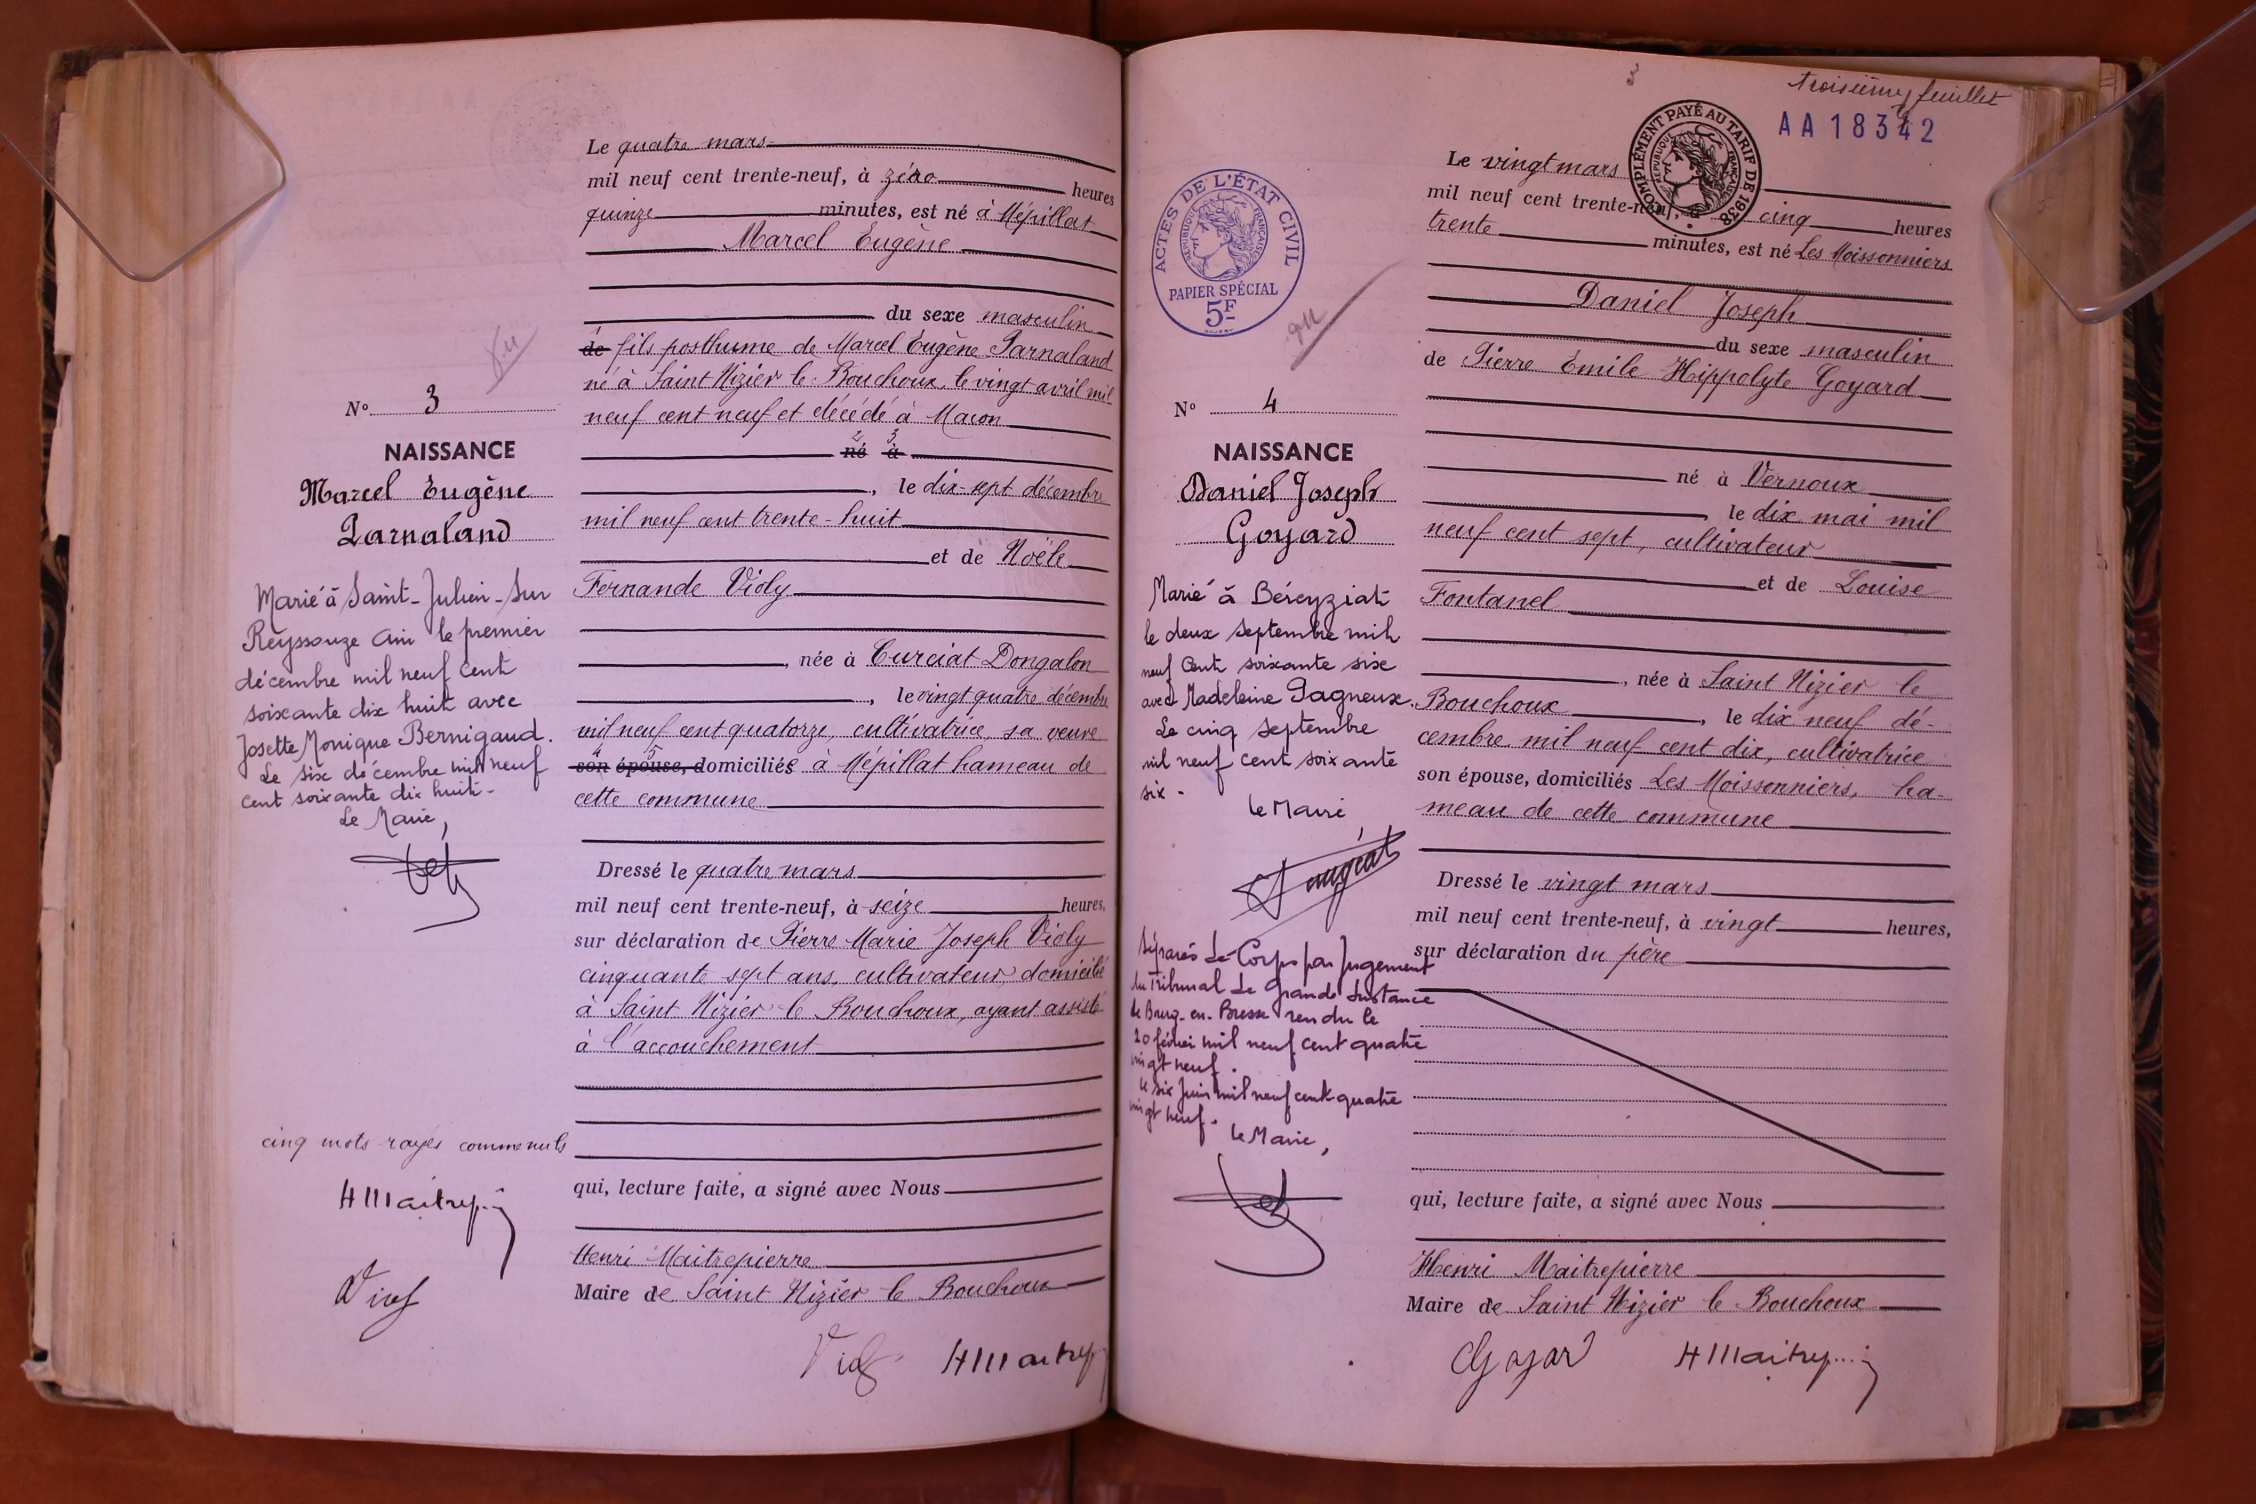 Le quatre mars
mil neuf cent trente-neuf, à zéro heures
quinze minutes, est né à Mépillat
Marcel Eugène
du sexe masculin
de fils posthume de Marcel Eugène Parnaland
né à Saint Nizier le Bouchoux, le vingt avril mil
neuf cent neuf et décédé à Macon
né à
2 3
, le dix-sept décembre
mil neuf cent trente-huit
et de Noële
Fernande Violy
, née à Curciat Dongalon
, le vingt quatre décembre
mil neuf cent quatorze, cultivatrice sa veuve
4 5
son épouse, domiciliés à Mépillat hameau de
cette commune
Dressé le quatre mars
mil neuf cent trente-neuf, à seize heures,
sur déclaration de Pierre Marie Joseph Violy
cinquante sept ans, cultivateur, domicilié
à Saint Nizier le Bouchoux, ayant assisté
à l'accouchement
qui, lecture faite, a signé avec Nous
Henri Maitrepierre
Maire de Saint Nizier le Bouchoux
N° 3
NAISSANCE
Marcel Eugène
Parnaland
Marié à Saint-Julien-sur
Reyssouze Ain le premier
décembre mil neuf cent
soixante dix huit avec
Josette Monique Bernigaud.
Le six décembre mil neuf
cent soixante dix huit-
Le Maire,
cinq mots rayés comme nuls
troisième feuillet
AA 18342
COMPLÉMENT PAYÉ AU TARIF DE 1938
RÉPUBLIQUE FRANÇAISE
ACTES DE L'ÉTAT CIVIL
RÉPUBLIQUE FRANÇAISE
PAPIER SPÉCIAL
5F
N° 4
NAISSANCE
Daniel Joseph
Goyard
Marié à Béreyziat
le deux septembre mil
neuf cent soixante six
avec Madeleine Pagneux.
Le cinq septembre
mil neuf cent soixante
six -
le Maire
Séparés de Corps par Jugement
du Tribunal de Grande Instance
de Bourg-en-Bresse rendu le
20 février mil neuf cent quatre
vingt neuf.
le six Juin mil neuf cent quatre
vingt neuf.
le Maire,
Le vingt mars
mil neuf cent trente-neuf, à cinq heures
trente minutes, est né Les Moissonniers
Daniel Joseph
du sexe masculin
de Pierre Emile Hippolyte Goyard
né à Vernoux
le dix mai mil
neuf cent sept, cultivateur
et de Louise
Fontanel
, née à Saint Nizier le
Bouchoux, le dix neuf dé-
cembre mil neuf cent dix, cultivatrice
son épouse, domiciliés Les Moissonniers, ha-
meau de cette commune
Dressé le vingt mars
mil neuf cent trente-neuf, à vingt heures,
sur déclaration du père
qui, lecture faite, a signé avec Nous
Henri Maitrepierre
Maire de Saint Nizier le Bouchoux